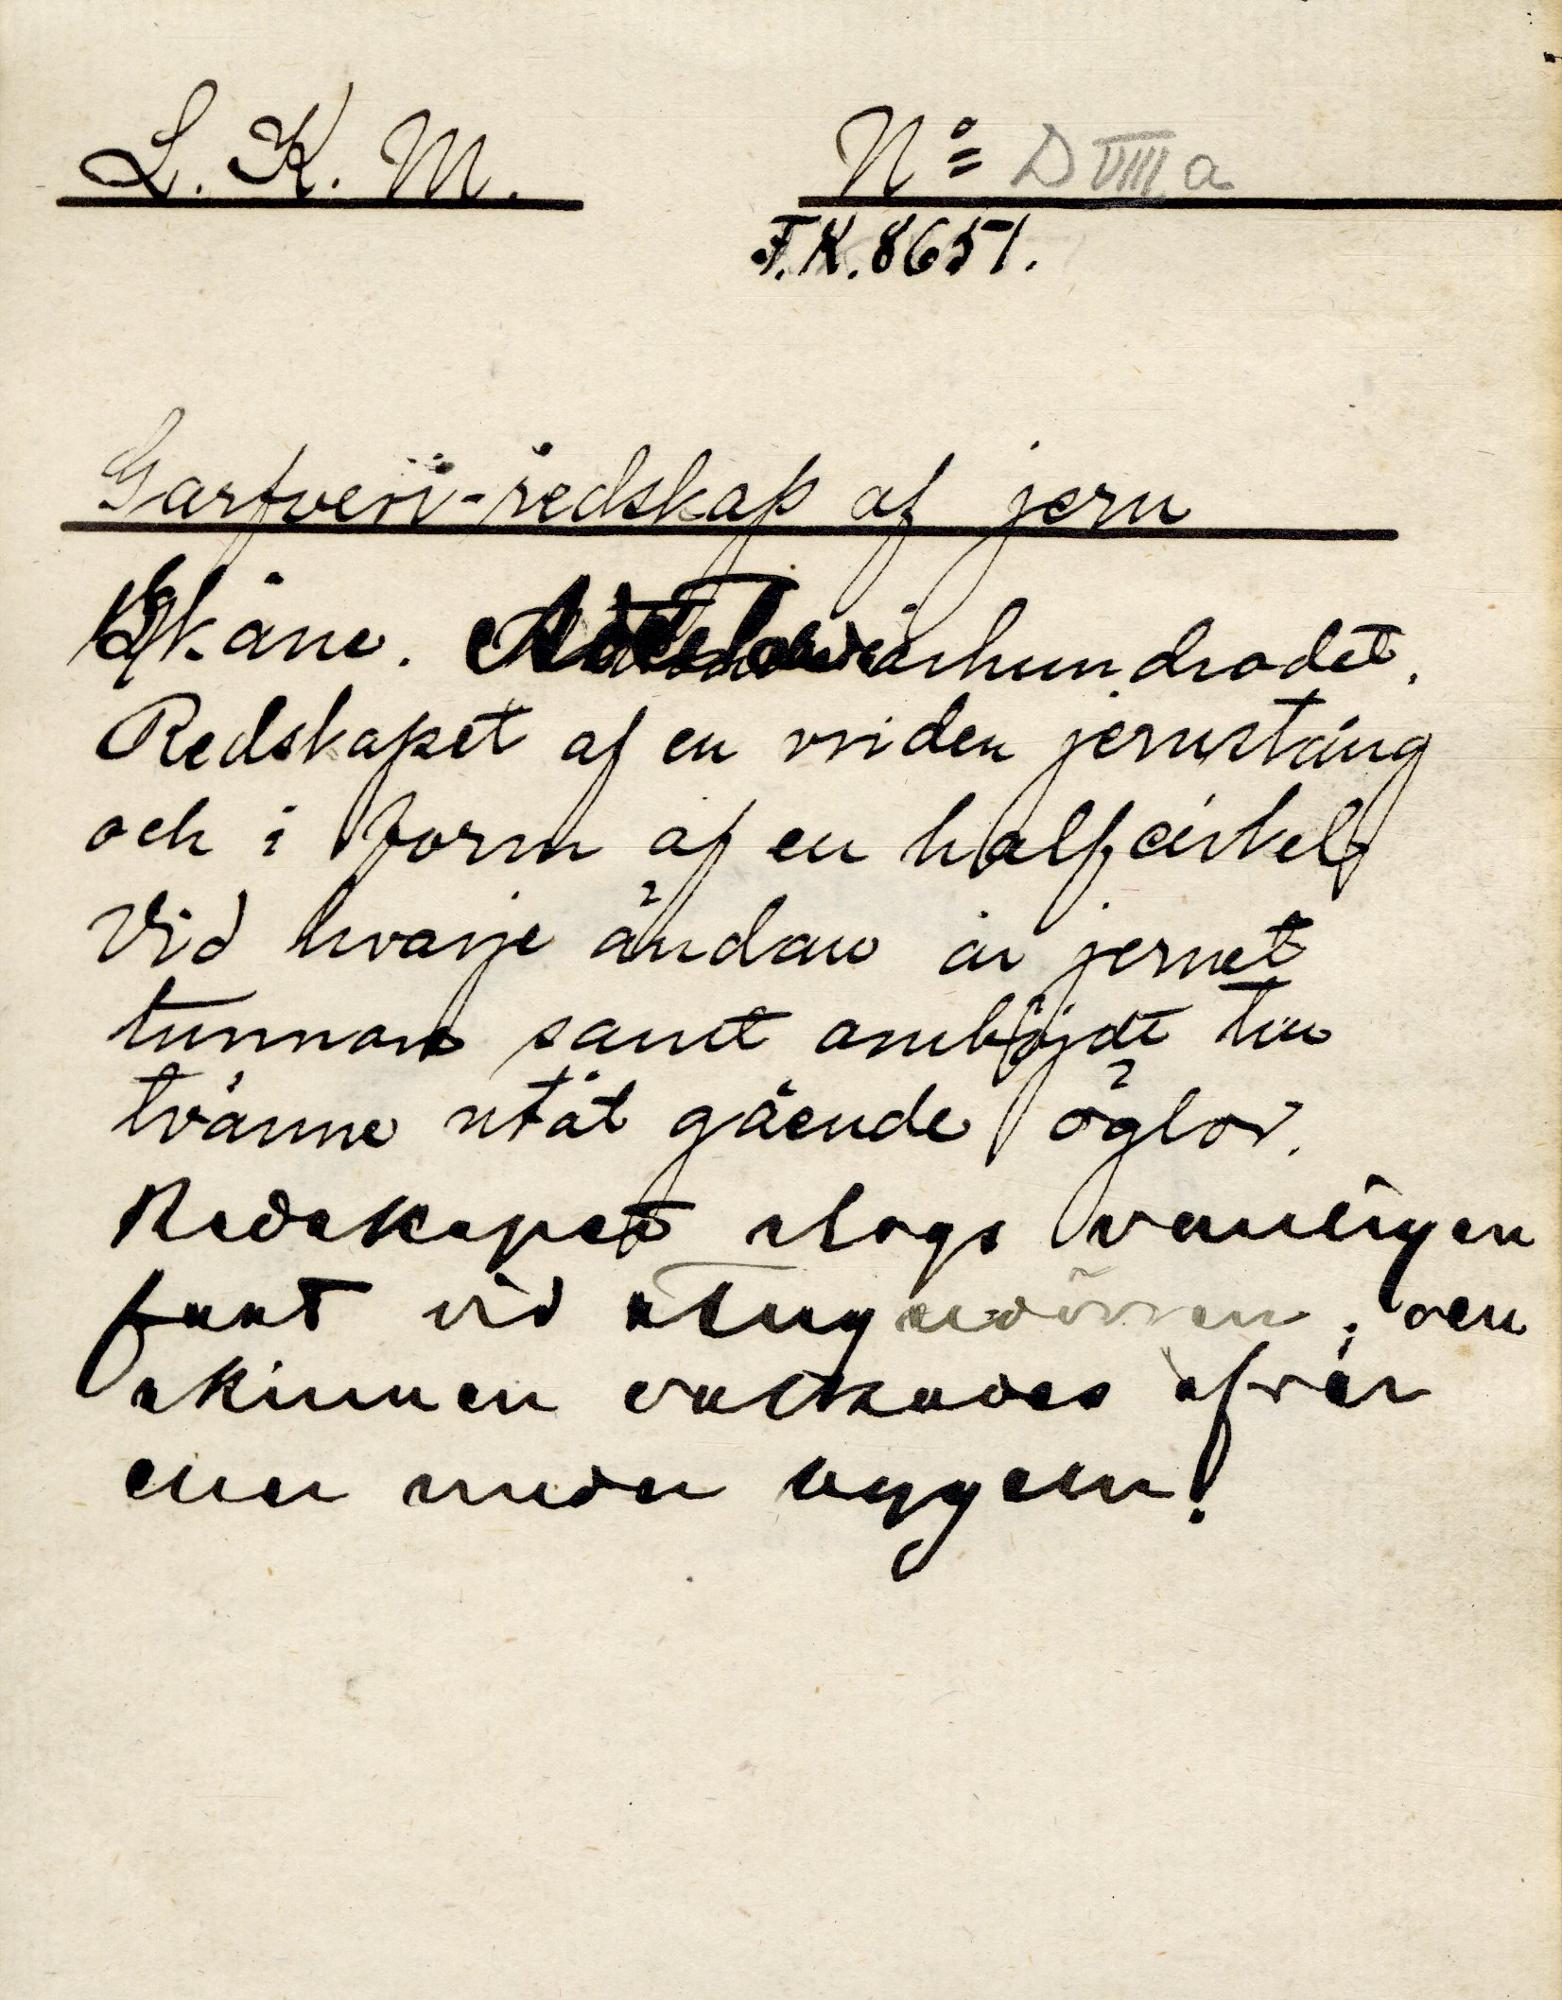 L. K. M. Nº D VIII a
F.K. 8651.
Garfveri-redskap af jern
Skåne. århundradet.
Redskapet af en vriden jernstång
och i form af en halfcirkel
Vid hvarje ändan är jernet
tunnare samt omböjdt till
tvänne utåt gående öglor.
Redskapet slogs vanligen
fast vid stugudörren, och
skinnen valkades öfver
eller under bygeln.